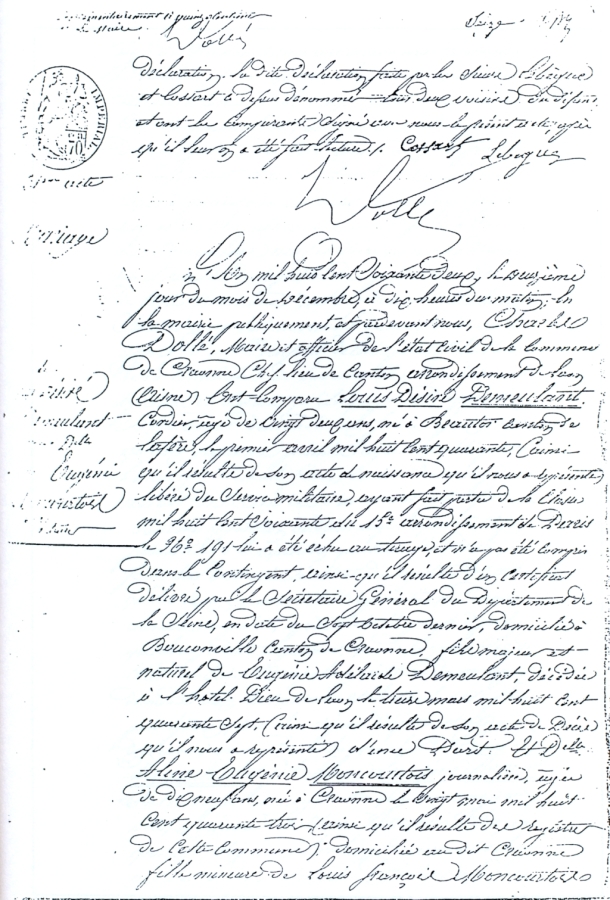 Le Maire
Dollé
Seize
IMPERIAL
70
déclaration. la dite déclaration faite par les Sieurs Lebègue
et Cossart ci dessus dénommé tous deux voisins du défunt
et ont les Comparants signé avec nous le présent acte, après
qu'il leur en a été fait lecture /. Cossart Lebègue
Dollé
acte
Mariage
L'An mil huit Cent Soixante Deux, le deuxième
jour du mois de Décembre, à dix heures du matin, En
la mairie publiquement, et pardevant nous, Charles
Dollé, Maire et officier de l'état Civil de la Commune
de Craonne Chef lieu de Canton arrondissement de Laon
(aisne) Ont Comparu Louis Désiré Demeulant
Cordier, agé de vingt deux ans, né à Beautor canton de
Lafère, le premier avril mil huit Cent quarante, (ainsi
qu'il résulte de son acte de naissance qu'il nous a représenté)
libéré du Service militaire, ayant fait partie de la Classe
mil huit Cent Soixante du 15e arrondissement de Paris
le No 191 lui a été échu au tirage, et n'a pas été Compris
Dans le Contingent, ainsi qu'il résulte d'un Certificat
délivré par le Sécrétaire Général du Département de
la Seine, en date du Sept Octobre dernier, domicilié à
Bouconville Canton de Craonne, fils majeur et
naturel de Eugénie Adélaïde Demeulant, décédée
à l'hotel Dieu de Laon le treize mars mil huit Cent
quarante Sept, (ainsi qu'il résulte de Son acte de Décès
qu'il nous a représenté) d'une Part Et Delle
Aline Eugénie Moncourtois journalière, agée
de dix neuf ans, née à Craonne le vingt mai mil huit
Cent quarante trois (ainsi qu'il résulte des registres
de Cette Commune) domiciliée au dit Craonne
fille mineure de Louis françois Moncourtois
Demeulant
Delle
Eugénie